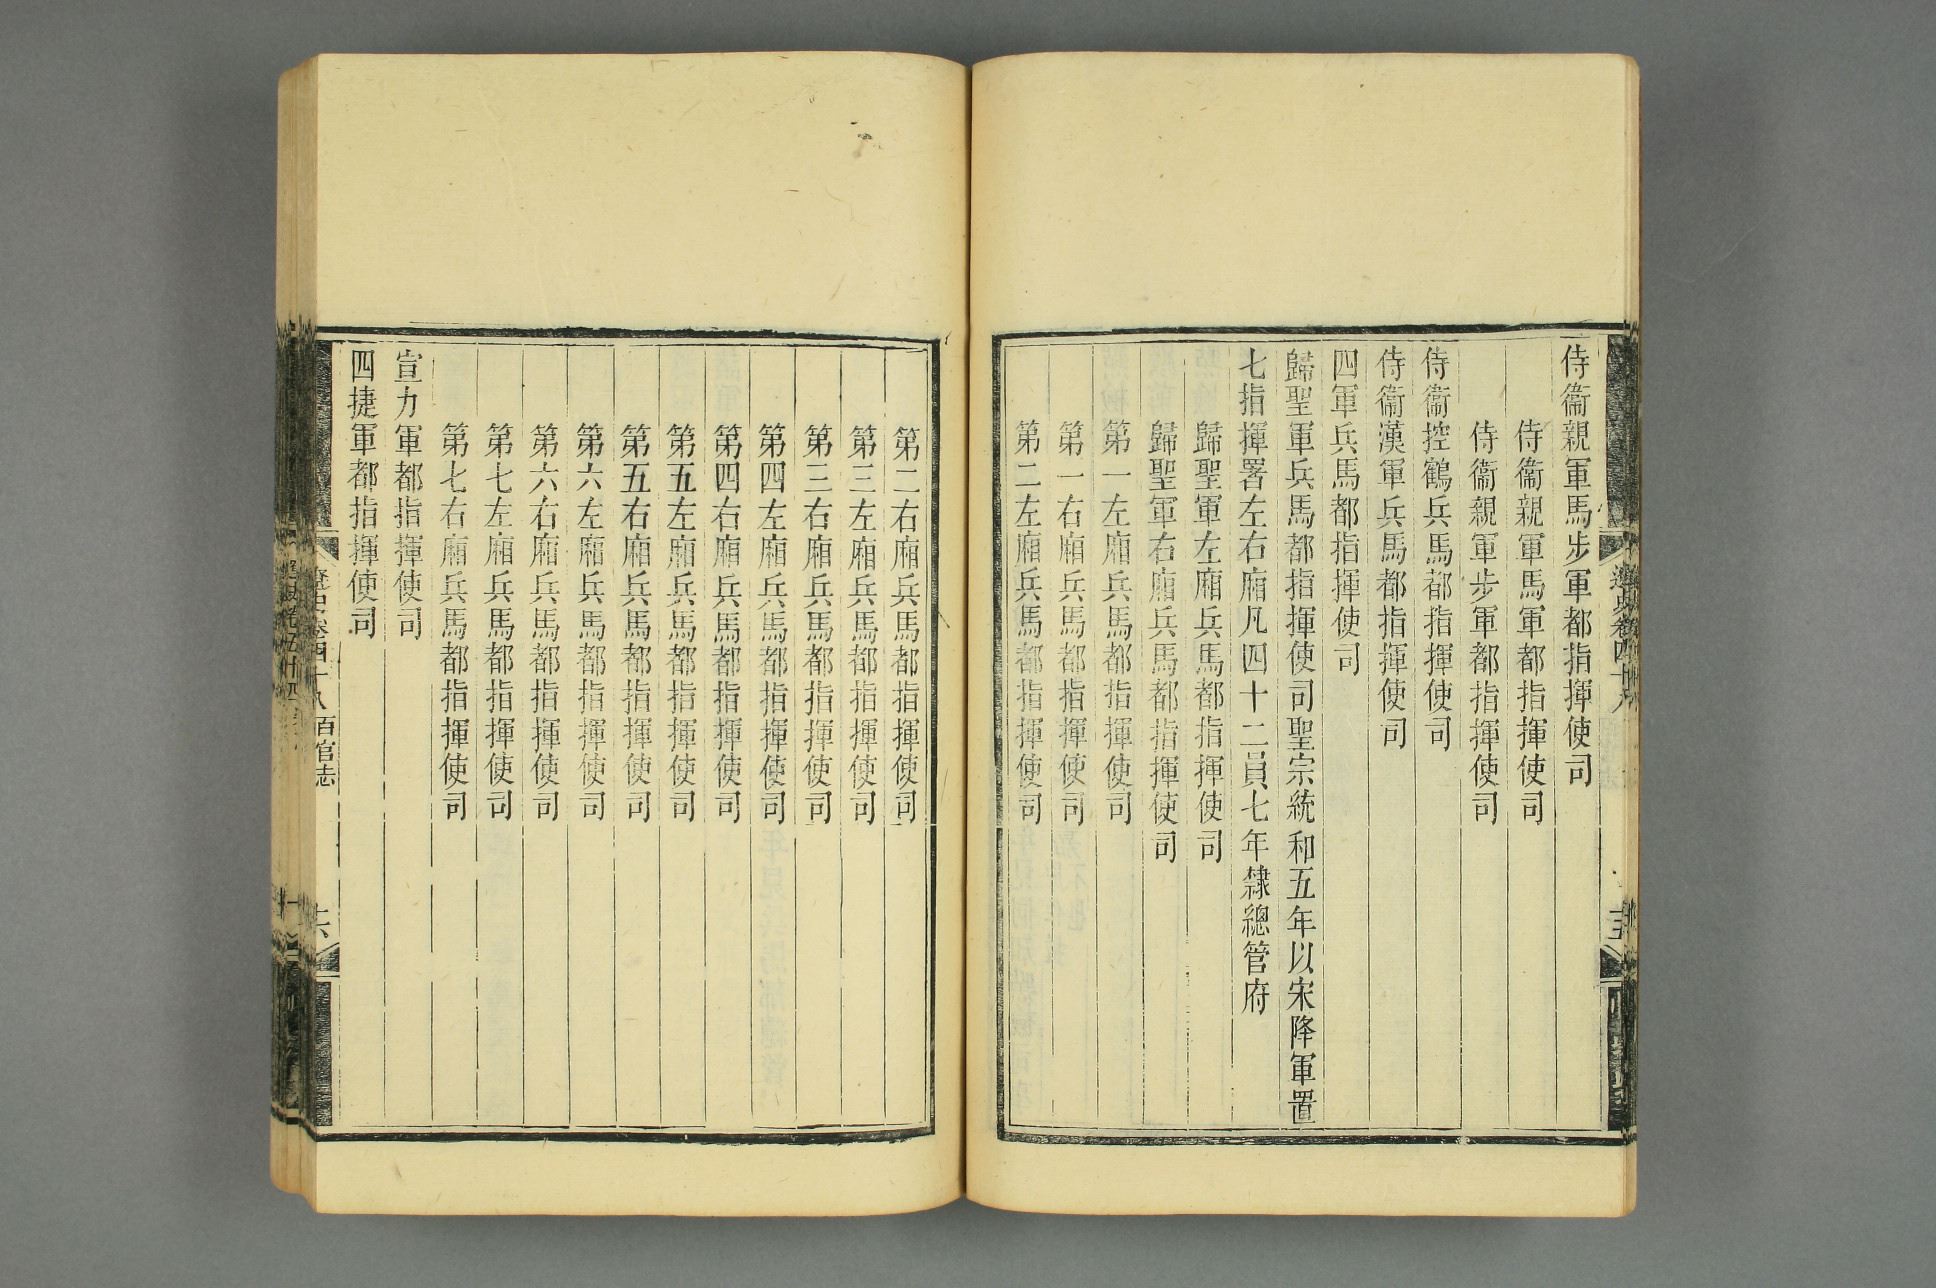 侍衞親軍馬步軍都指揮使司
侍衞親軍馬軍都指揮使司
侍衞親軍步軍都指揮使司
侍衞控鶴兵馬都指揮使司
侍衞漢軍兵馬都指揮使司
四軍兵馬都指揮使司
歸聖軍兵馬都指揮使司聖宗統和五年以宋降軍置
七指揮署左右廂凡四十二員七年隸總管府
歸聖軍左廂兵馬都指揮使司
歸聖軍右廂兵馬都指揮使司
第一左廂兵馬都指揮使司
第一右廂兵馬都指揮使司
第二左廂兵馬都指揮使司
第二右廂兵馬都指揮使司
第三左廂兵馬都指揮使司
第三右廂兵馬都指揮使司
第四左廂兵馬都指揮使司
第四右廂兵馬都指揮使司
第五左廂兵馬都指揮使司
第五右廂兵馬都指揮使司
第六左廂兵馬都指揮使司
第六右廂兵馬都指揮使司
第七左廂兵馬都指揮使司
第七右廂兵馬都指揮使司
宣力軍都指揮使司
四捷軍都指揮使司
遼史卷四十八 百官志 十六